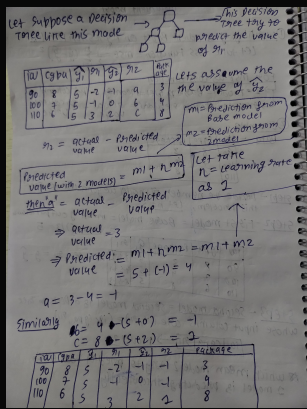 Let suppose a Decision
Tree like this made
This decision
Tree try to
predict the value
of r1
iq cgpa ŷ1 r1 ŷ2 r2
90 8 5 -2 -1 a 3
100 7 5 -1 0 b 4
110 6 5 3 2 c 8
Lets assume the
the value of ŷ2
m1 = Prediction from
Base model
m2 = Prediction from
2 model
r2 = actual value - Predicted value
Predicted value (with 2 models) = m1 + n m2
Let take
n = learning rate
as 1
then "a" = actual value - Predicted value
⇒ actual value = 3
⇒ Predicted value = m1 + n m2 = m1 + m2
= 5 + (-1) = 4
a = 3 - 4 = -1
Similarly
b = 4 - (5+0) = -1
c = 8 - (5+2) = 1
iq cgpa y1 r1 y2 r2 package
90 8 5 -2 -1 -1 3
100 7 5 -1 0 -1 4
110 6 5 3 2 1 8